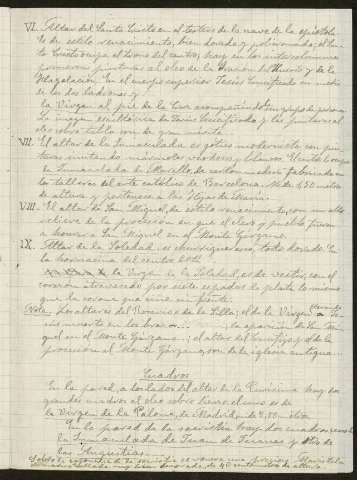 VI. Altar del Santo Cristo en el testero de la nave de la epistola
de estilo renacimiento, bien dorado y policromado; el San-
to Cristo ocupa el trono del centro; hay en los intercolumnios
primorosas pinturas al oleo de la Oración del Huerto y de la
Flagelación. En el cuerpo superior Jesús Crucificado en medio
de los dos ladrones y
la Virgen al pie de la Cruz acompañada de un grupo de
La imagen escultórica de Jesús Crucificado y las pinturas al
oleo sobre tabla son de gran mérito.
VII. El altar de la Inmaculada es gótico modernista con pin-
turas imitando mármoles verdes y blancos. El centro lo ocupa
la Inmaculada de Murillo, de carton madera fabricada en
los talleres del arte católico de Barcelona. Mide 1,50 metros
de altura y pertenece a las Hijas de María.
VIII. El altar de San Miguel, de estilo renacimiento, con un alto
relieve de la procesión en que el clero y pueblo fueron
a honrar a San Miguel en el Monte Gárgano.
IX. Altar de la Soledad, es churrigueresco, todo dorado. En
la hornacina del centro
la Virgen de la Soledad, es de vestir, con el
corazón atravesado por siete espadas de plata lo mismo
que la corona que ciñe su frente.
Nota. Los altares del Descenso de la Silla; el de la Virgen llevando a Je-
sús muerto en los brazos; la aparición de San Mi-
guel en el Monte Gárgano; el altar del Crucifijo y de la
procesión al Monte Gárgano, son de la iglesia antigua
Cuadros
En la pared, a los lados del altar de la Purísima hay dos
grandes cuadros al oleo sobre lienzo, el uno es de
la Virgen de la Paloma, de Madrid, mide 2,50 metros
En la pared de la sacristía hay dos cuadros
la Inmaculada de Juan de Juanes y otro de
las Angustias.